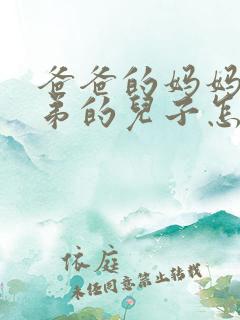 爸爸的妈妈
弟的兒子怎
依庭
未经同意禁止转载